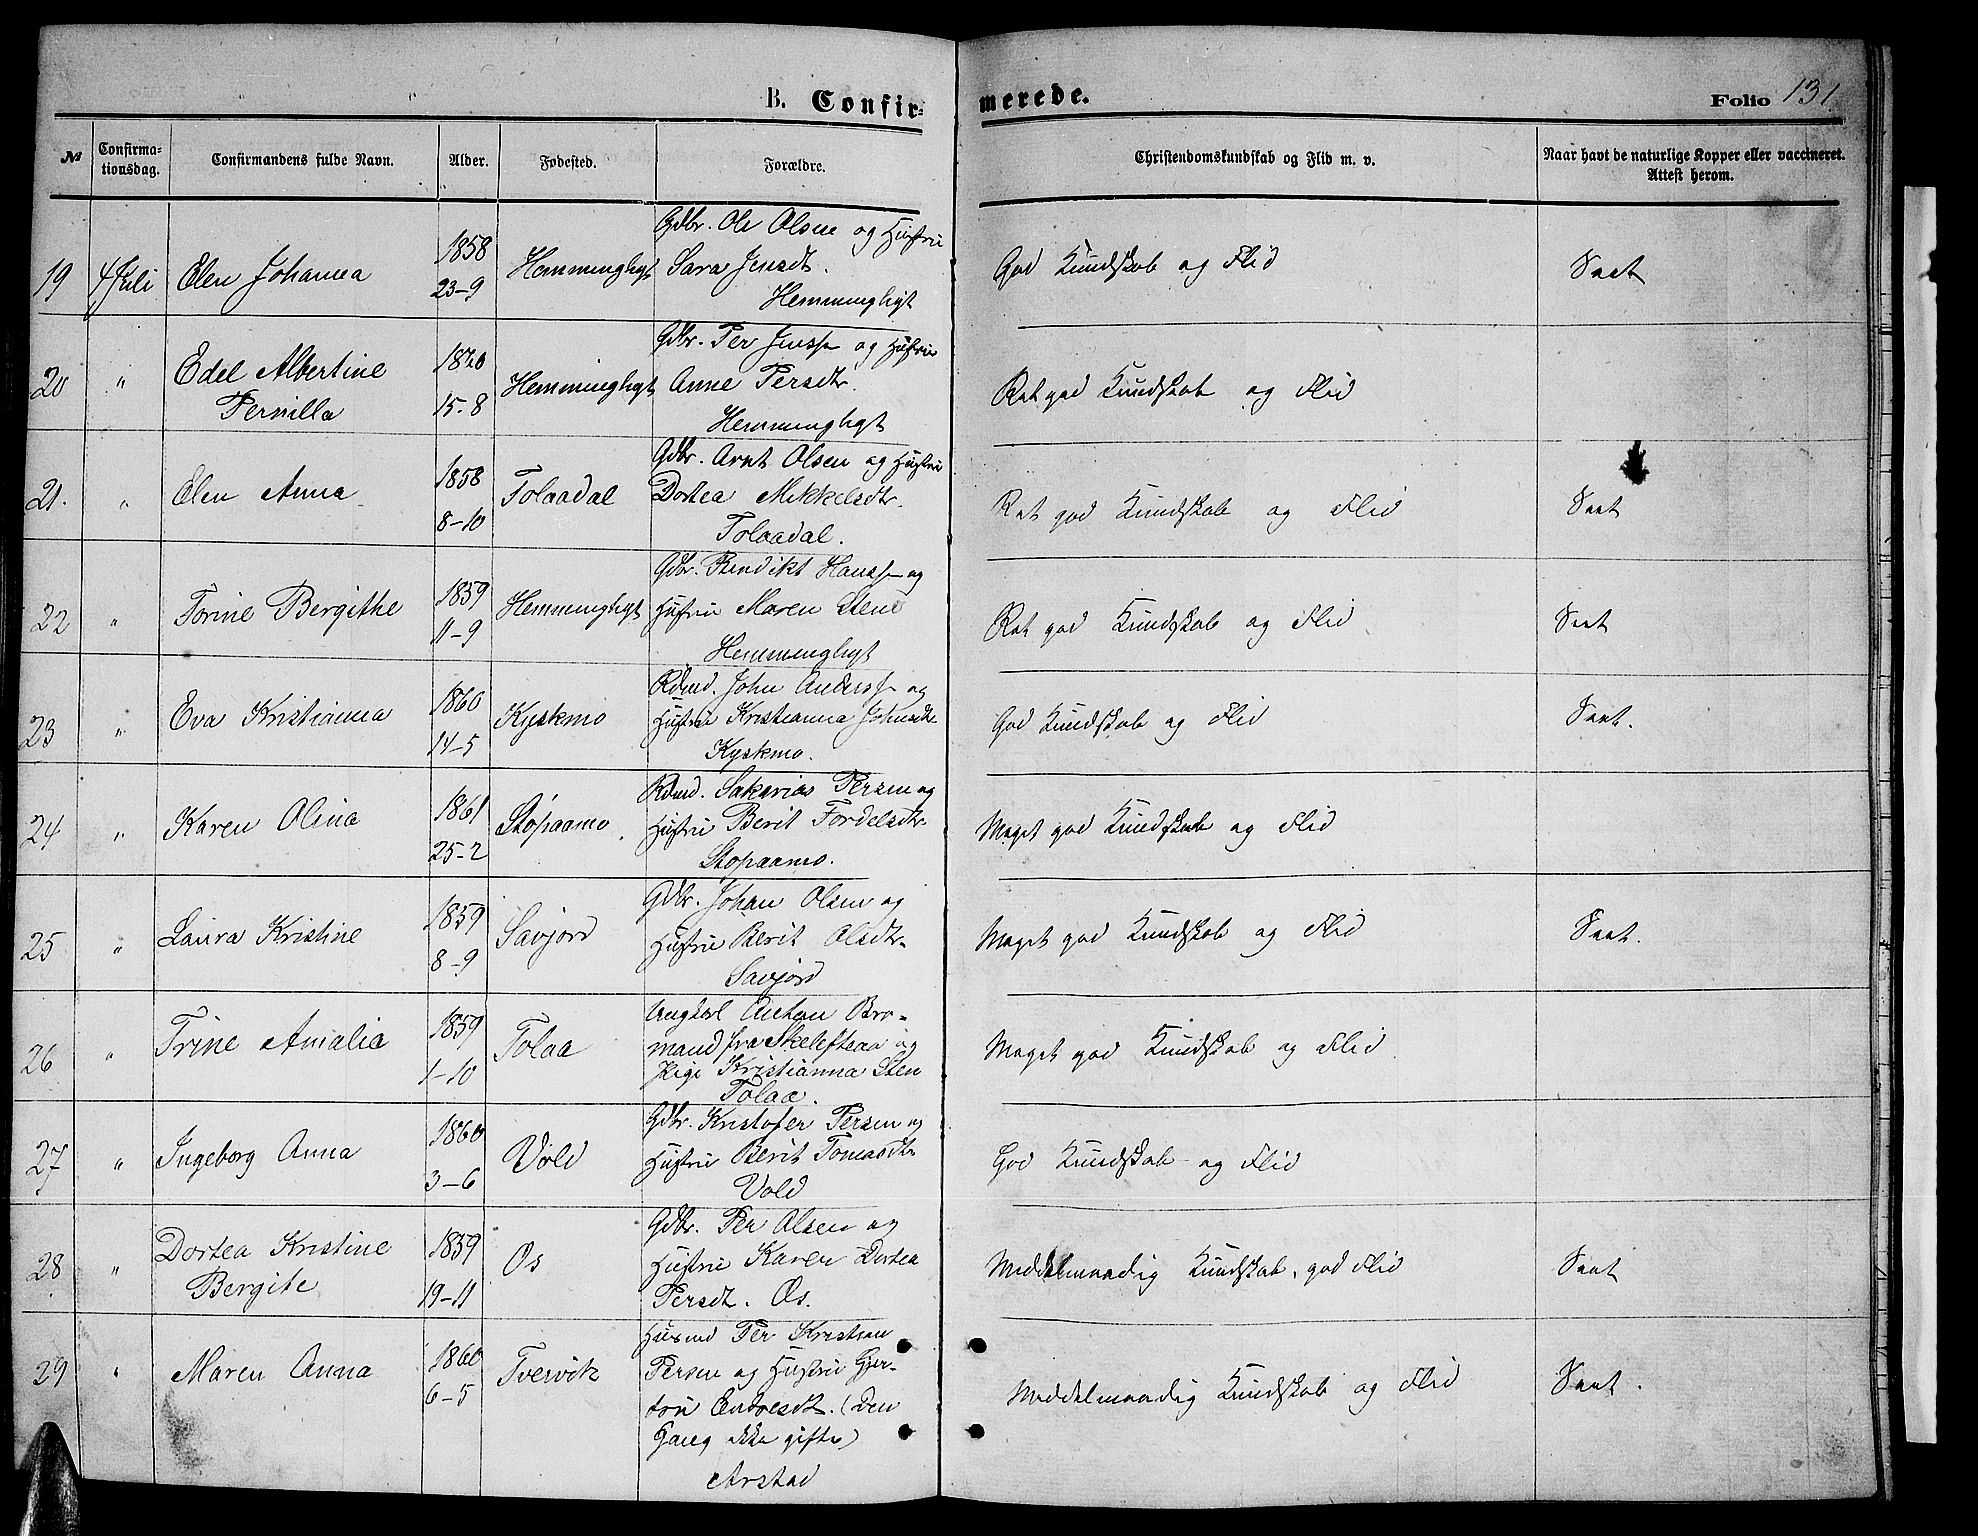 B. Confirmerede.
Folio 131
№ Confirmationsdag. Confirmandens fulde Navn. Alder. Fødested. Forældre. Christendomskundskab og Flid m. v. Naar havt de naturlige Kopper eller vaccineret. Attest herom.
19 4 Juli Elen Johanna 1858 23-9 Hemminghyt
Gdbr. Ole Olsen og Hustru
Sara Jensdt.
Hemminghyt
God Kundskab og Flid
20 " Edel Albertine
Pernilla
15-8 Hemminghyt
Gdbr. Per Jenss og Hustru
Anne Persdtr.
Hemminghyt
Ret god Kundskab og Flid
21. " Elen Anna 1858 8-10 Tolaadal
Gdbr. Arnt Olsen og Hustru
Dortea Mikkelsdtr.
Tolaadal.
Ret god Kundskab og Flid
22 " Torine Bergithe 1859 11-9 Hemminghyt
Gdbr. Bendikt Hanss og
Hustru Maren Stene
Hemminghyt
Ret god Kundskab og Flid
23 " Eva Kristianna 1860 14-5 Kyskmo
Rdmd. John Anderss og
Hustru Kristianna Johnsdtr
Kyskmo.
God Kundskab og Flid
24 " Karen Olina 1861 25-2 Stopaamo.
Rdmd. Sakarias Persen og
Hustru Berit Fordelsdtr
Stopaamo.
Meget god Kundskab og Flid
25 " Laura Kristine 1859 8-9 Savjord
Gdbr. Johan Olsen og
Hustru Berit Olsdtr.
Savjord
Meget god Kundskab og Flid
26 " Trine Amalia 1859 1-10 Tolaa
Ungkarl Anton Bro-
mand fra Skelefteaa og
Pige Kristianna Sten
Tolaa.
Meget god Kundskab og Flid
27 " Ingeborg Anna 1860 3-6 Vold
Gdbr. Kristofer Persen og
Hustru Berit Tomasdtr
Vold
God Kundskab og Flid
28 " Dortea Kristine
Bergite
1859 19-11 Os
Gdbr. Per Olsen og
Hustru Karen Dortea
Persdt. Os.
Middelmaadig Kundskab, god Flid
29 " Maren Anna 1860 6-5 Tvervik
Husmd Per Kristian
Persen og Hustru Gjer-
tru Endresdt. (Den
Gang ikke gifte)
Arstad
Middelmaadig Kundskab og Flid